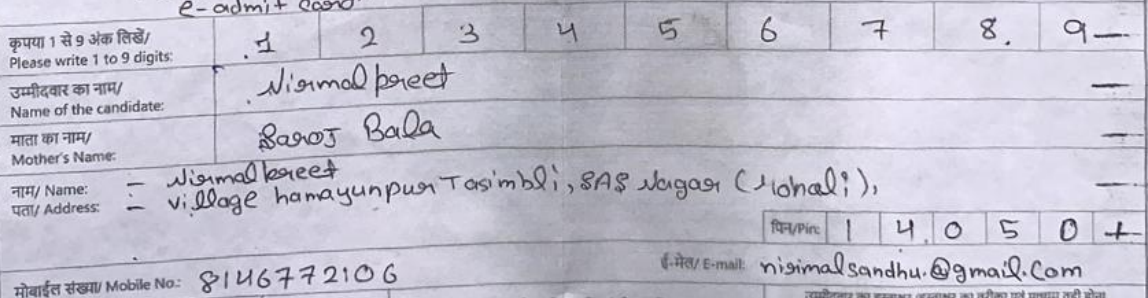 e-admit card
कृपया 1 से 9 अंक लिखें/
Please write 1 to 9 digits: 1 2 3 4 5 6 7 8. 9
उम्मीदवार का नाम/
Name of the candidate: Nirmalpreet
माता का नाम/
Mother's Name: Saroj Bala
नाम/ Name: = Nirmalpreet
पता/ Address: = village hamayunpur Tasimbli, SAS Nagar (Mohali),
पिन/Pin: 1 4 0 5 0 7
मोबाईल संख्या/ Mobile No.: 8146772106 ई-मेल/ E-mail: nirimalsandhu.@gmail.com